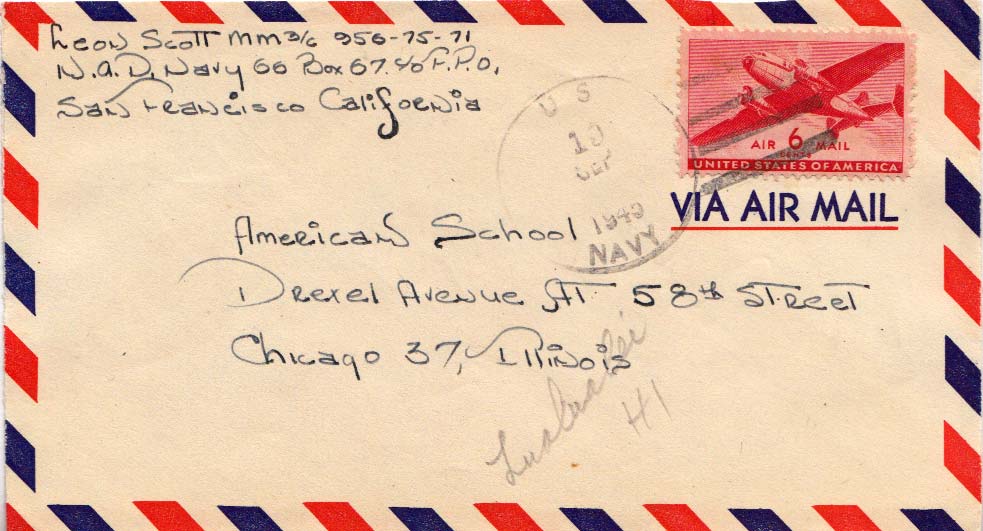 Leon Scott MM3/c 956-75-71
N.A.D. Navy 66 Box 67. c/o F.P.O.
San Francisco California
U S
10
SEP
1949
NAVY
AIR 6 MAIL
CENTS
UNITED STATES OF AMERICA
VIA AIR MAIL
American School
Drexel Avenue AT 58th Street
Chicago 37, Illinois
Lualualei
HI